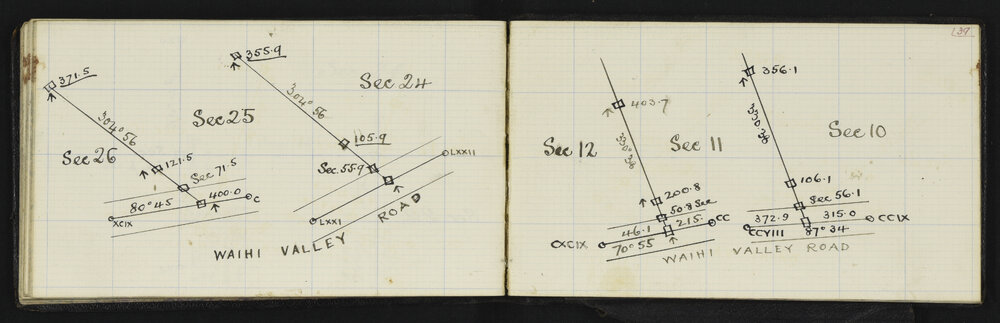 371.5
304°56
Sec 26
Sec 25
121.5
Sec 71.5
80°45
400.0
C
XCIX
355.9
304°56
Sec 24
105.9
Sec. 55.9
LXXII
LXXI
WAIHI VALLEY ROAD
139
403.7
330°38
Sec 12
Sec 11
200.8
50.8 Sec
46.1
215.
CC
CXCIX
70°55
356.1
330°38
Sec 10
106.1
Sec 56.1
372.9
315.0
CCIX
CCVIII
87°34
WAIHI VALLEY ROAD